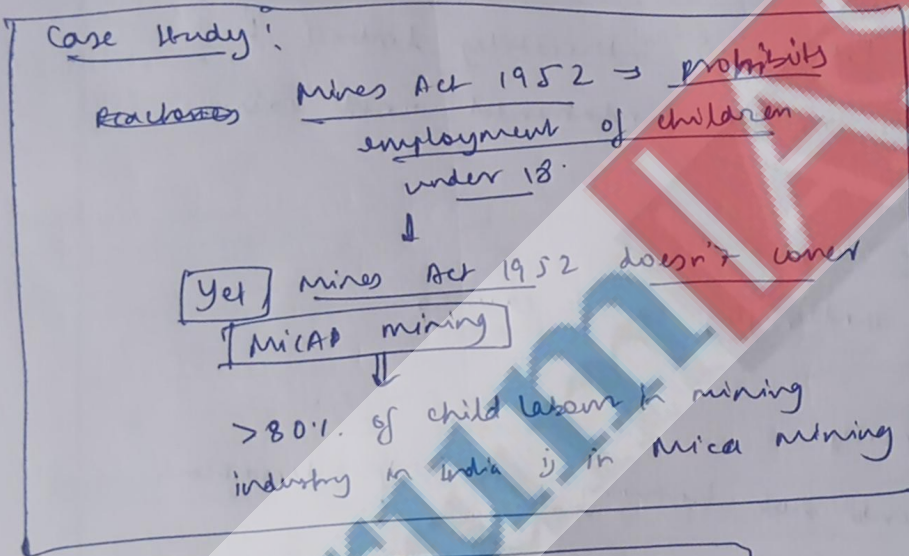 Case Study:
Mines Act 1952 → prohibits
employment of children
under 18.
↓
Yet Mines Act 1952 doesn't cover
MICAP mining
⇓
>80%. of child labour in mining
industry in India is in Mica Mining
rum IAS